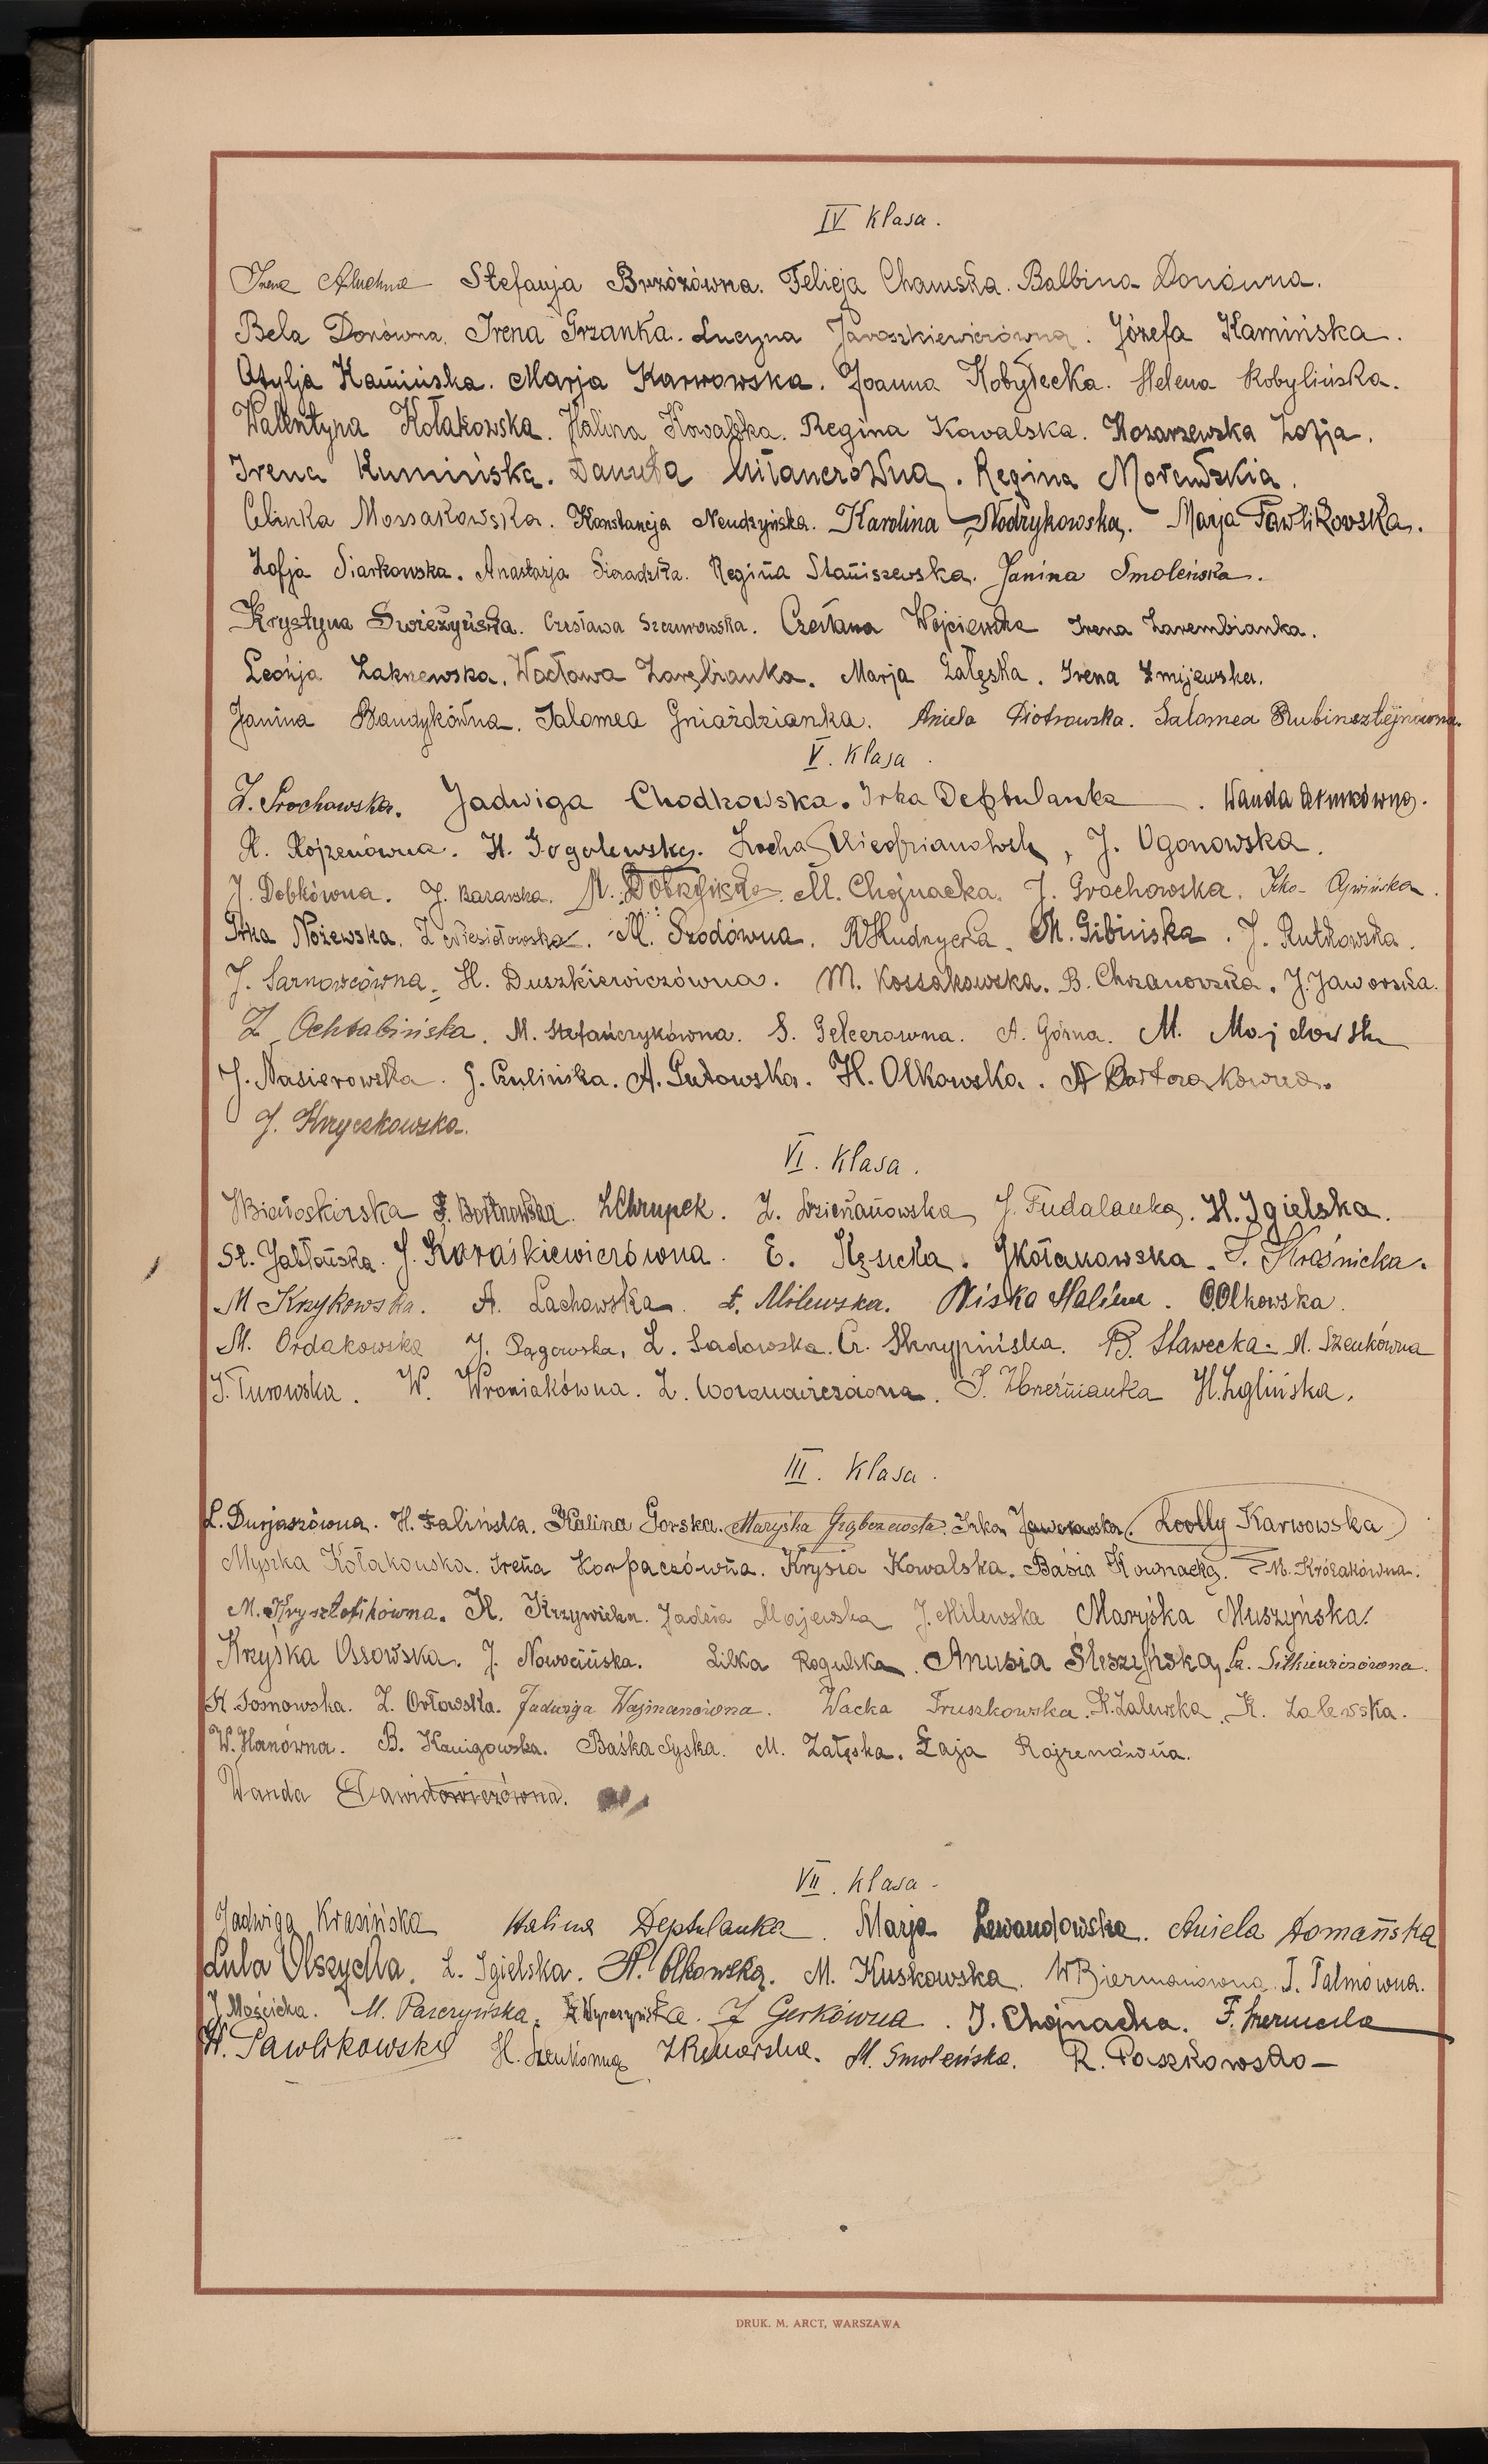 IV Klasa.
Irena Stefanja Brzózówna. Felicja Chamska. Balbina Donówna.
Bela Donówna. Irena Grzanka. Lucyna Jaroszkiewiczówna. Józefa Kamińska.
Otylja Kamińska. Marja Karwowska. Joanna Kobyłecka. Helena Kobylińska.
Walentyna Kołakowska. Halina Kowalska. Regina Kowalska. Kosarzewska Zofja.
Irena Kumińska. Danuta Regina
Celinka Mossakowska. Konstancja Nendzyńska. Karolina Nodzykowska. Marja Pawlikowska.
Zofja Siarkowska. Anastazja Sieradzka. Regina Staniszewska. Janina Smoleńska.
Krystyna Swieżyńska. Czesława Szczurowska. Czesława Wojciewska Irena Zarembianka.
Leonja Zakrzewska. Wacława Zarębianka. Marja Załęska. Irena Żmijewska.
Janina Bandykówna. Salomea Gniazdzianka. Aniela Piotrowska. Salomea Rubinsztejnówna.
V. Klasa.
Z. Jadwiga Chodkowska. Irka Deptulanka. Wanda
R. Rojzenówna. H. Gogolewska. Zocha J. Ogonowska.
J. Dobkówna. J. M. M. Chojnacka. J. Grochowska.
Irka Nożewska. Z. Niesiołowska. M. Srodówna. M. Gibińska. J. Rutkowska.
J. Sarnowcówna. H. Duszkiewiczówna. M. Kossakowska. B. Chrzanowska. J. Jaworska.
Z. Ochtabińska. M. Stefańczykówna. S. A. Górna. M.
J. Nasierowska. J. Czulińska. A. Gutowska. H. Olkowska.
J. Kryczkowska.
VI. Klasa.
Białoskórska F. Bortnowska. Z Chrupek. Z. J. Fudalanka. H. Igielska.
St. Jabłońska. J. Karaśkiewiczówna. E. Kęsicka. J Kołakowska. Kraśnicka.
M Krzykowska. A. Lachowska. Milewska. Niska Halina. O. Olkowska.
M. Ordakowska J. Pągowska. Z. Sadowska. Cz. Skrypińska. B. Sławecka. M. Szenkówna
J. Turowska. W. Wroniakówna. Z. H. Zglińska.
III. Klasa.
L. Durjaszówna. H. Falińska. Halina Gorska. Maryśka Irka Jaworowska. Loolly Karwowska
Myszka Kołakowska. Irena Korpaczówna. Krysia Kowalska. Basia Kownacka. M. Królakówna.
M. Krysztofikówna. K. Krzywicka. Jadzia Majewska J. Milewska Maryśka Muszyńska.
Krzyśka Ossowska. J. Nowocińska. Lilka Rogulska. Anusia Śleszyńska. Cz. Sitkiewiczówna.
K. Sosnowska. Z. Orłowska. Jadwiga Wajmanówna. Wacka Truszkowska. K. Zalewska. K. Zalewska.
W. Hanówna. B. Kanigowska. Baśka Syska. M. Załęska. Łaja Rojzenówna.
Wanda Dawidowiczówna.
VII. Klasa
Jadwiga Krasińska Halina Deptulanka. Marja Lewandowska. Aniela Domańska
Lula Olszycka. L. Igielska. H. Olkowska. M. Kuskowska. W Biermanówna. T. Talmówna.
J. Mościcka. M. Parczyńska. Z. Gerkówna. J. Chojnacka. F.
H. Pawlikowska H. Szenkówna M. Smoleńska. R. Paszkowska
DRUK. M. ARCT, WARSZAWA